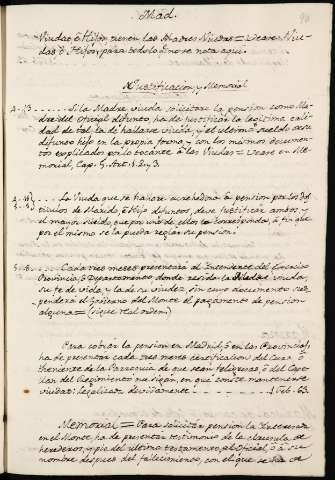 Mad.
Viudas è Hijos tienen las Madres Viudas = Veare Viu-
das è Hijos para todo lo que se nota aqui.
Justificacion, y Memorial
4.-3...... Si la Madre viuda solicitare la pension como Ma-
dre del oficial difunto, ha de justificar la legitima cali-
dad de tal, la de hallarse viuda, y el ultimo sueldo de su
difunto hijo en la propia forma, y con los mismos documen-
tos explicados por lo tocante à las Viudas = Vease en Me-
morial, Cap. 5. Art. 1. 2. y 3.
La Viuda que se hallare acrehedora à pension por los dos
titulos de Marido, è Hijo difuntos, deve justificar ambos, y
el mayor sueldo que por uno de ellos la corresponda, à fin que
por el mismo se la pueda reglar su pension.
Cada tres meses presentarà al Intendente del Exercito
Provincia, ò Departamento, donde resida la Viuda
su fe de vida, y la de su viudez, sin cuyo documento sus-
penderà el Govierno del Monte el pagamento de pension
alguna = (sigue Real orden)
Para cobrar la pension en Madrid, ò en las Provincias,
ha de presentar cada tres meses certificacion del Cura, ò
Theniente de la Parroquia de que sean feligresas, ò del Cape-
llan del Regimiento que sigan, en que conste mantenerse
viudas, legalizada devidamente
Memorial = Para solicitar pension la Interesada
en el Monte, ha de presentar testimonio de la clausula de
herederos, y pie del ultimo testamento, del Oficial, ò à su
nombre despues del fallecimiento, con el que se ha de